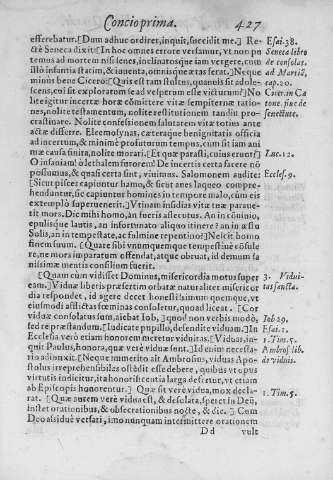 Concio prima. 427
efferebatur. [Dum adhuc ordiret, inquit, succidit me.] Re- Esai. 38.
ctè Seneca dixit: In hoc omnes errore versamur, vt non pu- Seneca libro
temus ad mortem nisi senes, inclinatosque iam vergere, cum de consolat.
illò infantia statim, & iuuenta, omnisque ætas ferat.] Neque ad Martiã,
minus bene Cicero: [Quis est tam stultus, quamuis sit adole- cap. 20.
scens, cui sit exploratum se ad vesperum esse victurum?] No Cicer. in Ca
lite igitur incertæ horæ cõmittere vitæ sempiternæ ratio- tone, siue de
nes, nolite testamentum, nolite restitutionem tandiu pro- senectute.
crastinare. Nolite confessionem salutarem vitæ totius ante
actæ differre. Eleemosynas, cæteraque benignitatis officia
ad incertum, & minimè profuturum tempus, cum sit iam ani
mæ causa finita, nolite morari. [Et quæ parasti, cuius erunt?] Luc. 12.
O insaniam! ò lethalem stuporem! De incertis certa facere nõ
possumus, & quasi certa sint, viuimus. Salomonem audite: Eccles. 9.
[Sicut pisces capiuntur hamo, & sicut aues laqueo compre-
henduntur, sic capiuntur homines in tempore malo, cum eis
extemplò superuenerit.] Vtinam insidias vitæ tuæ paraue-
rit mors. Dic mihi homo, an fueris assecutus. An in cõuiuio,
epulisque lautis, an infortunato aliquo itinere? an in æstu
Solis, an in tempestate, ac fulmine repentino? Nescit homo
finem suum. [Quare sibi vnumquemque tempestiuè cõsule
re, ne mors imparatum offendat, atque obruat, id demum sa
nissimæ mentis consilium fuerit.
[Quam cum vidisset Dominus, misericordia motus super 3. Vidui-
eam.] Viduæ liberis præsertim orbatæ naturaliter misericor tas sancta.
dia respondet, id agere decet honestissimum quemque, vt
eiusmodi afflictas fœminas consoletur, quoad liceat. [Cor
viduæ consolatus sum, aiebat Iob,] quod non verbis modò, Iob 29.
sed re præstandum. [Iudicate pupillo, defendite viduam.] In Esai. 1.
Ecclesia verò etiam honorem meretur viduitas. [Viduas, in- 1. Tim. 5.
quit Paulus, honora, quæ verè viduæ sunt.] Id enim necessa- Ambros lib.
riò adiunxit. [Neque immeritò ait Ambrosius, viduas Apo- de viduis.
stolus irreprehensibiles ostẽdit esse debere, quibus vt opus
virtutis indicitur, ita honorificentia larga defertur, vt etiam
ab Episcopis honorentur.] Quæ sit verè vidua, mox decla- 1. Tim. 5.
rat. [Quæ autem verè vidua est, & desolata, speret in Deũ,
instet orationibus, & obsecrationibus nocte, & die.] Cum
Deo assiduè versari, imo nunquam intermittere orationem
Dd vult